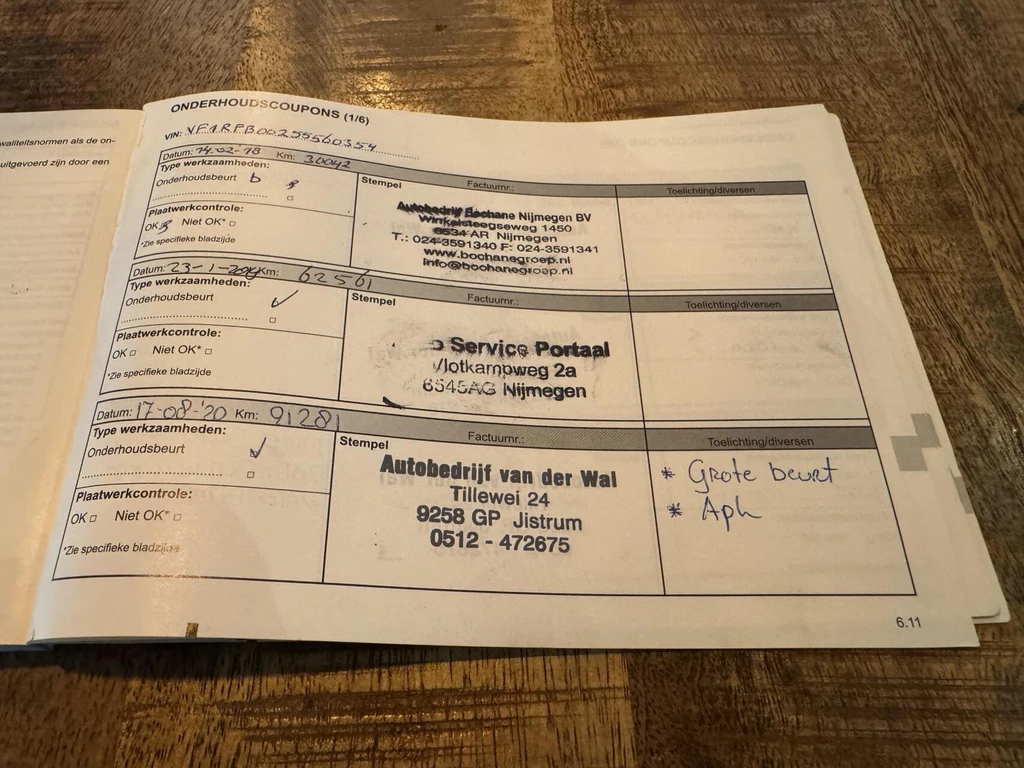 waliteitsnormen als de on-
uitgevoerd zijn door een
ONDERHOUDSCOUPONS (1/6)
VIN: VF1RFB00255560354
Datum: 14-02-18 Km: 30042
Type werkzaamheden:
Onderhoudsbeurt
Plaatwerkcontrole:
OK Niet OK*
*Zie specifieke bladzijde
Stempel Factuurnr.: Toelichting/diversen
Autobedrijf Bochane Nijmegen BV
Winkelsteegseweg 1450
6534 AR Nijmegen
T.: 024-3591340 F: 024-3591341
www.bochanegroep.nl
info@bochanegroep.nl
Datum: 23-1- Km: 62561
Type werkzaamheden:
Onderhoudsbeurt ✓
Plaatwerkcontrole:
OK Niet OK*
*Zie specifieke bladzijde
Stempel Factuurnr.: Toelichting/diversen
Service Portaal
Vlotkampweg 2a
6545AG Nijmegen
Datum: 17-08-'20 Km: 91281
Type werkzaamheden:
Onderhoudsbeurt ✓
Plaatwerkcontrole:
OK Niet OK*
*Zie specifieke bladzijde
Stempel Factuurnr.: Toelichting/diversen
Autobedrijf van der Wal
Tillewei 24
9258 GP Jistrum
0512 - 472675
* Grote beurt
* Apk
6.11